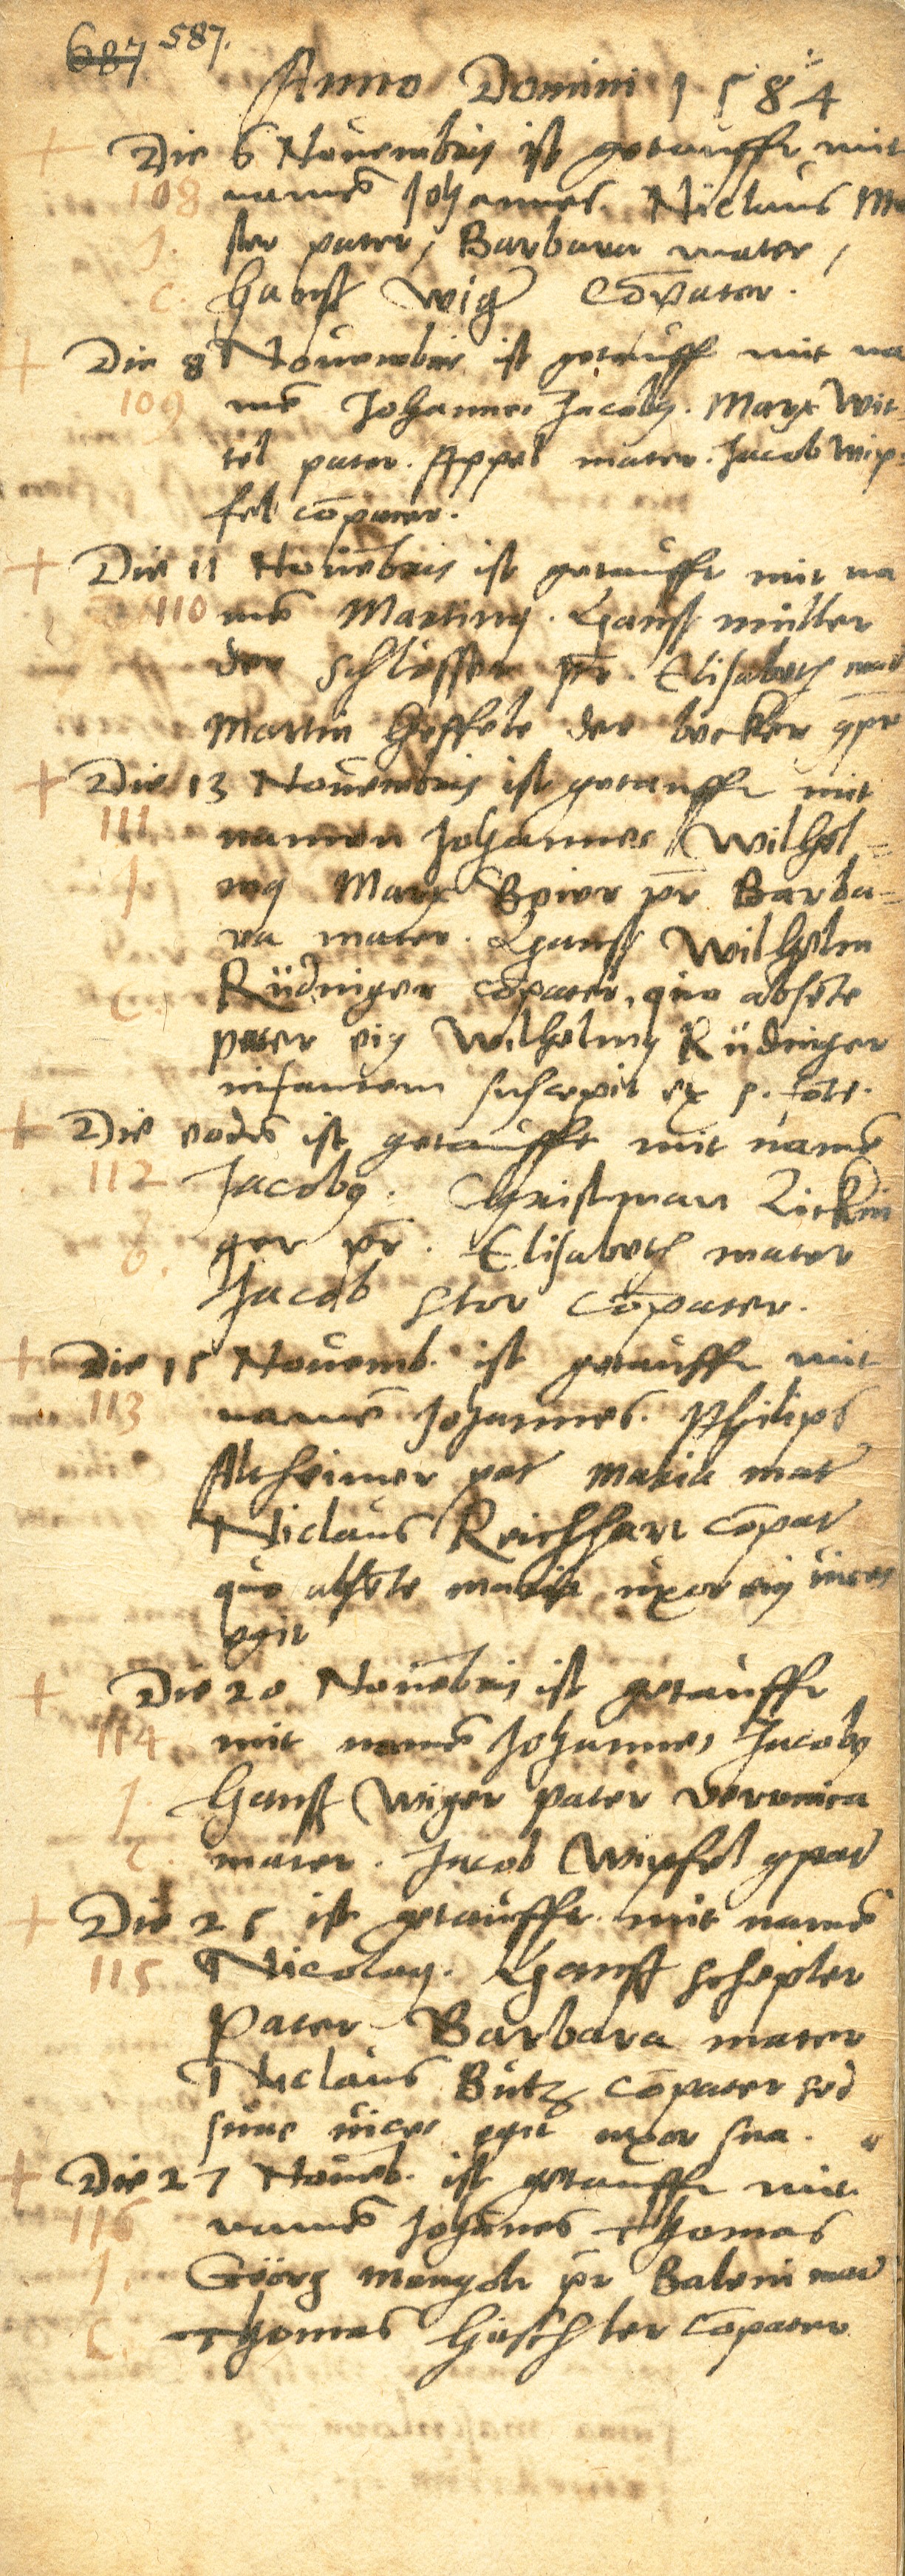 687 587.
Anno Domini 1584
Die 6 Nouembris ist getaufft mit
108 namē Johannes. Niclaus
J. ster pater, Barbara mater,
c. Hanss Wig Cōpater.
Die 8 Nouembris ist getaufft mit na
109 mē Johannes Jacobus. Marx Wit-
tel pater. Appel mater. Jacob Wip-
fel cōpater.
Die 11 Nouēbris ist getaufft mit na
110 mē Martinus. Hanss müller
der schlosser pr̄. Elisabeth mat
Martin Heffele der becker
Die 13 Nouembris ist getaufft mit
111 namen Johannes Wilhel=
J mus Marx Beier pr̄ Barba=
ra mater. Hanss Wilhelm
C. Rüdinger cōpater, quo absēte
pater eius Wilhelmus Rüdinger
infantem suscepit ex s. fōte.
Die eodē ist getaufft mit namē
112 Jacobus. Christman Zickin
ger pr̄. Elisabeth mater
Jacob stor Cōpater.
Die 15 Nouemb. ist getaufft mit
113 namē Johannes. Philips
Altheimer pat maria mat
Niclaus Reichhart cōpat
quo absēte maria uxor eius uices
egit
Die 20 Nouēbris ist getaufft
114 mit namē Johannes Jacobus
J. Hanss Wiger pater veronica
C. mater. Jacob Wipfel 9pat
Die 25 ist getaufft mit namē
115 Nicolaus. Hanss schepler
Pater Barbara mater
Niclaus Butz cōpater sed
suas uices egit uxor sua.
Die 27 Nouēb. ist getaufft mit
116 namē Johānes Thomas
J. Geörg mengoh pr̄ mat
C. Thomas Cōpater